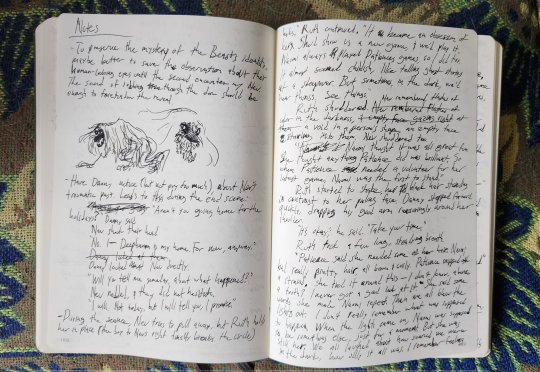 Notes
- To preserve the mystery of the Beast's identity,
maybe better to save the observation about their
human-looking eyes until the second encounter w/ Nev.
The sound of it through the door should be
enough to foreshadow the reveal
- Have Danny notice (but not pry too much) about Nev's
traumatic past. Leads to this during the end scene:
"Aren't you going home for the
holidays?" Danny said.
Nev shook their head.
"No. I– Deepharrow is my home. For now, anyway."
Danny looked at them
Danny looked at Nev directly.
"Will you tell me someday about what happened?"
Nev nodded, and they did not hesitate.
"I will. Not today, but I will tell you. I promise."
- During the seance, Nev tries to pull away, but Ruth holds
her in place (the boy to Nev's right breaks the circle)
Ruth continued. "It became an obsession of
hers. She'd show us a new game, & we'd play it.
Naomi always played Patience's games, so I did too.
It almost seemed childish, like telling ghost stories
at a sleepover. But sometimes in the dark, we'd
hear things. See things."
Ruth shuddered.
in the darkness,
a void in a person's shape, an empty face
staring into them. Nev shuddered too.
Naomi thought it was all great fun.
She thought anything Patience did was brilliant. So
when Patience needed a volunteer for her
latest game, Naomi was the first to stand."
Ruth started to shake, her black hair standing
in contrast to her paling skin. Danny stepped forward
quickly, wrapping his good arm reassuringly around her
shoulder.
"It's okay," he said. "Take your time."
Ruth took a few long, steadying breaths.
"Patience said she needed some of her hair. Naomi
had really pretty hair, all brown & curly. Patience snipped off
a strand. She tied it around this — I don't know, above
a doll? I never got a good look at it. She said some
words and made Naomi repeat. Then we all blew the
lights out. I don't really remember what was supposed
to happen. When the lights came on, Naomi was supposed
to be something else, just for a moment. But she was
still here. We all laughed about how scared we were
in the dark, how silly it all was. I remember feeling